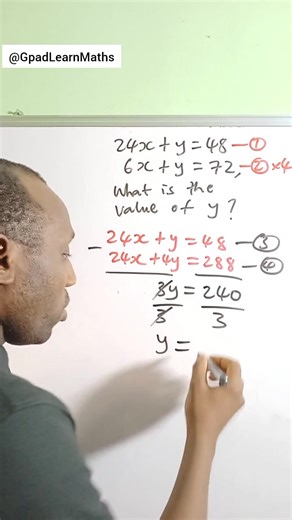 @GpadLearnMaths
24x + y = 48 — ①
6x + y = 72, — ② ×4
What is the
value of y?
− 24x + y = 48 — ③
24x + 4y = 288 — ④
3y = 240
3 3
y =